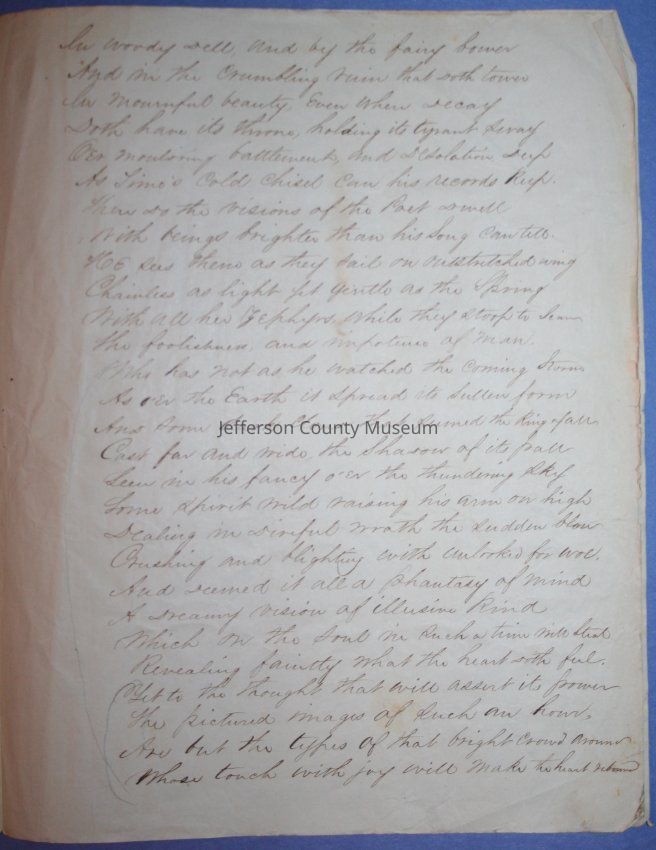 In woody dell, and by the fairy bower
And in the crumbling ruin that doth tower
In mournful beauty, Even when decay
Doth have its throne, holding its tyrant sway
O'er mouldring battlement, and Desolation deep
As Time's cold chisel can his records keep.
There do the visions of the Poet dwell
With beings brighter than his song can tell.
He sees them as they sail on outstretched wing
Chainless as light yet gentle as the Spring
With all her Zephyrs, while they stoop to scan
the foolishness, and impotence of man.
Who has not as he watched the coming Storm
As o'er the Earth it spread its sullen form
And some that seemed the King of all
Jefferson County Museum
Cast far and wide, the shadow of its pall
Seen in his fancy o'er the thundering sky
Some spirit wild raising his arm on high
Dealing in direful wrath the sudden blow
Crushing and blighting with unlooked for woe.
And deemed it all a phantasy of mind
A dreamy vision of illusive kind
Which on the soul in such a time will steal
Revealing faintly what the heart doth feel.
Yet to the thought that will assert its power
The pictured images of such an hour,
Are but the types of that bright crowd around
Whose touch with joy will make the heart rebound